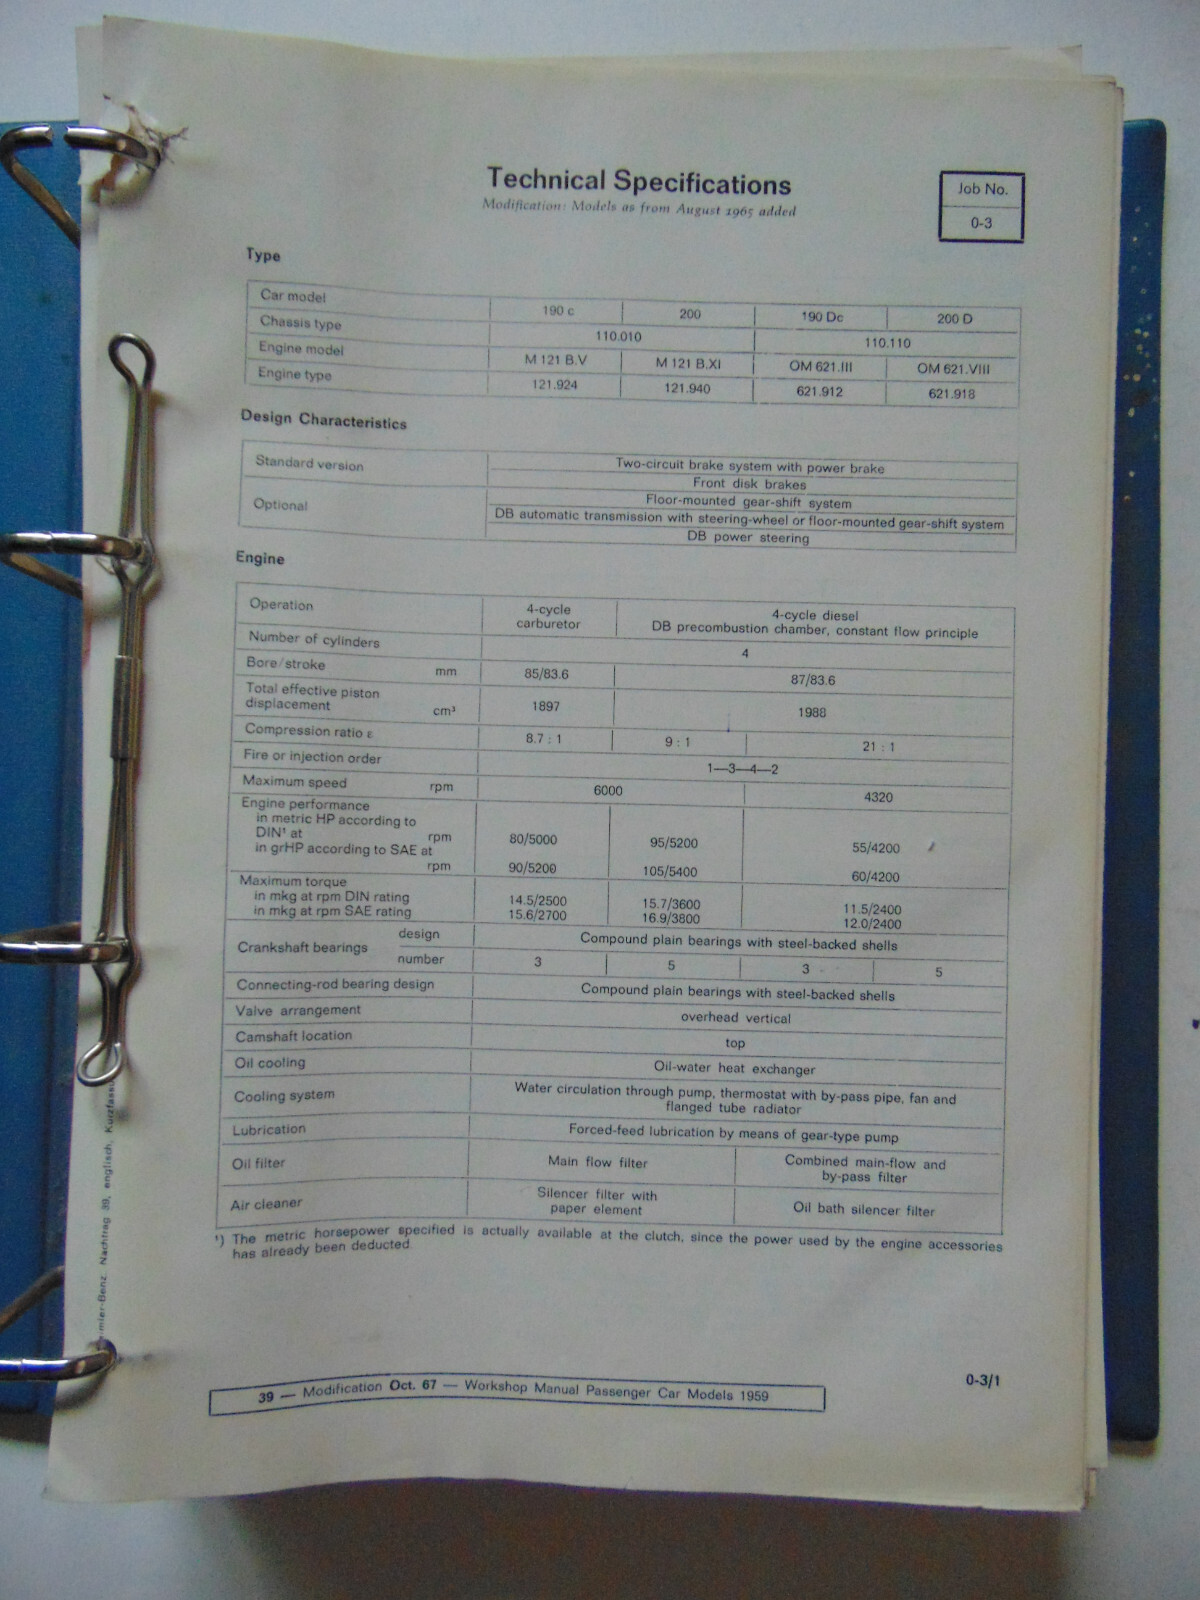 Technical Specifications
Modification: Models as from August 1965 added
Job No.
0-3
Type
Car model 190 c 200 190 Dc 200 D
Chassis type 110.010 110.110
Engine model M 121 B.V M 121 B.XI OM 621.III OM 621.VIII
Engine type 121.924 121.940 621.912 621.918
Design Characteristics
Standard version Two-circuit brake system with power brake
Front disk brakes
Optional Floor-mounted gear-shift system
DB automatic transmission with steering-wheel or floor-mounted gear-shift system
DB power steering
Engine
Operation 4-cycle carburetor 4-cycle diesel
DB precombustion chamber, constant flow principle
Number of cylinders 4
Bore/stroke mm 85/83.6 87/83.6
Total effective piston
displacement cm³ 1897 1988
Compression ratio ε 8.7 : 1 9 : 1 21 : 1
Fire or injection order 1—3—4—2
Maximum speed rpm 6000 4320
Engine performance
in metric HP according to
DIN¹ at rpm 80/5000 95/5200 55/4200
in grHP according to SAE at
rpm 90/5200 105/5400 60/4200
Maximum torque
in mkg at rpm DIN rating 14.5/2500 15.7/3600 11.5/2400
in mkg at rpm SAE rating 15.6/2700 16.9/3800 12.0/2400
Crankshaft bearings design Compound plain bearings with steel-backed shells
number 3 5 3 5
Connecting-rod bearing design Compound plain bearings with steel-backed shells
Valve arrangement overhead vertical
Camshaft location top
Oil cooling Oil-water heat exchanger
Cooling system Water circulation through pump, thermostat with by-pass pipe, fan and
flanged tube radiator
Lubrication Forced-feed lubrication by means of gear-type pump
Oil filter Main flow filter Combined main-flow and
by-pass filter
Air cleaner Silencer filter with
paper element Oil bath silencer filter
¹) The metric horsepower specified is actually available at the clutch, since the power used by the engine accessories
has already been deducted.
39 — Modification Oct. 67 — Workshop Manual Passenger Car Models 1959
0-3/1
mler-Benz. Nachtrag 39, englisch, Kurzfass